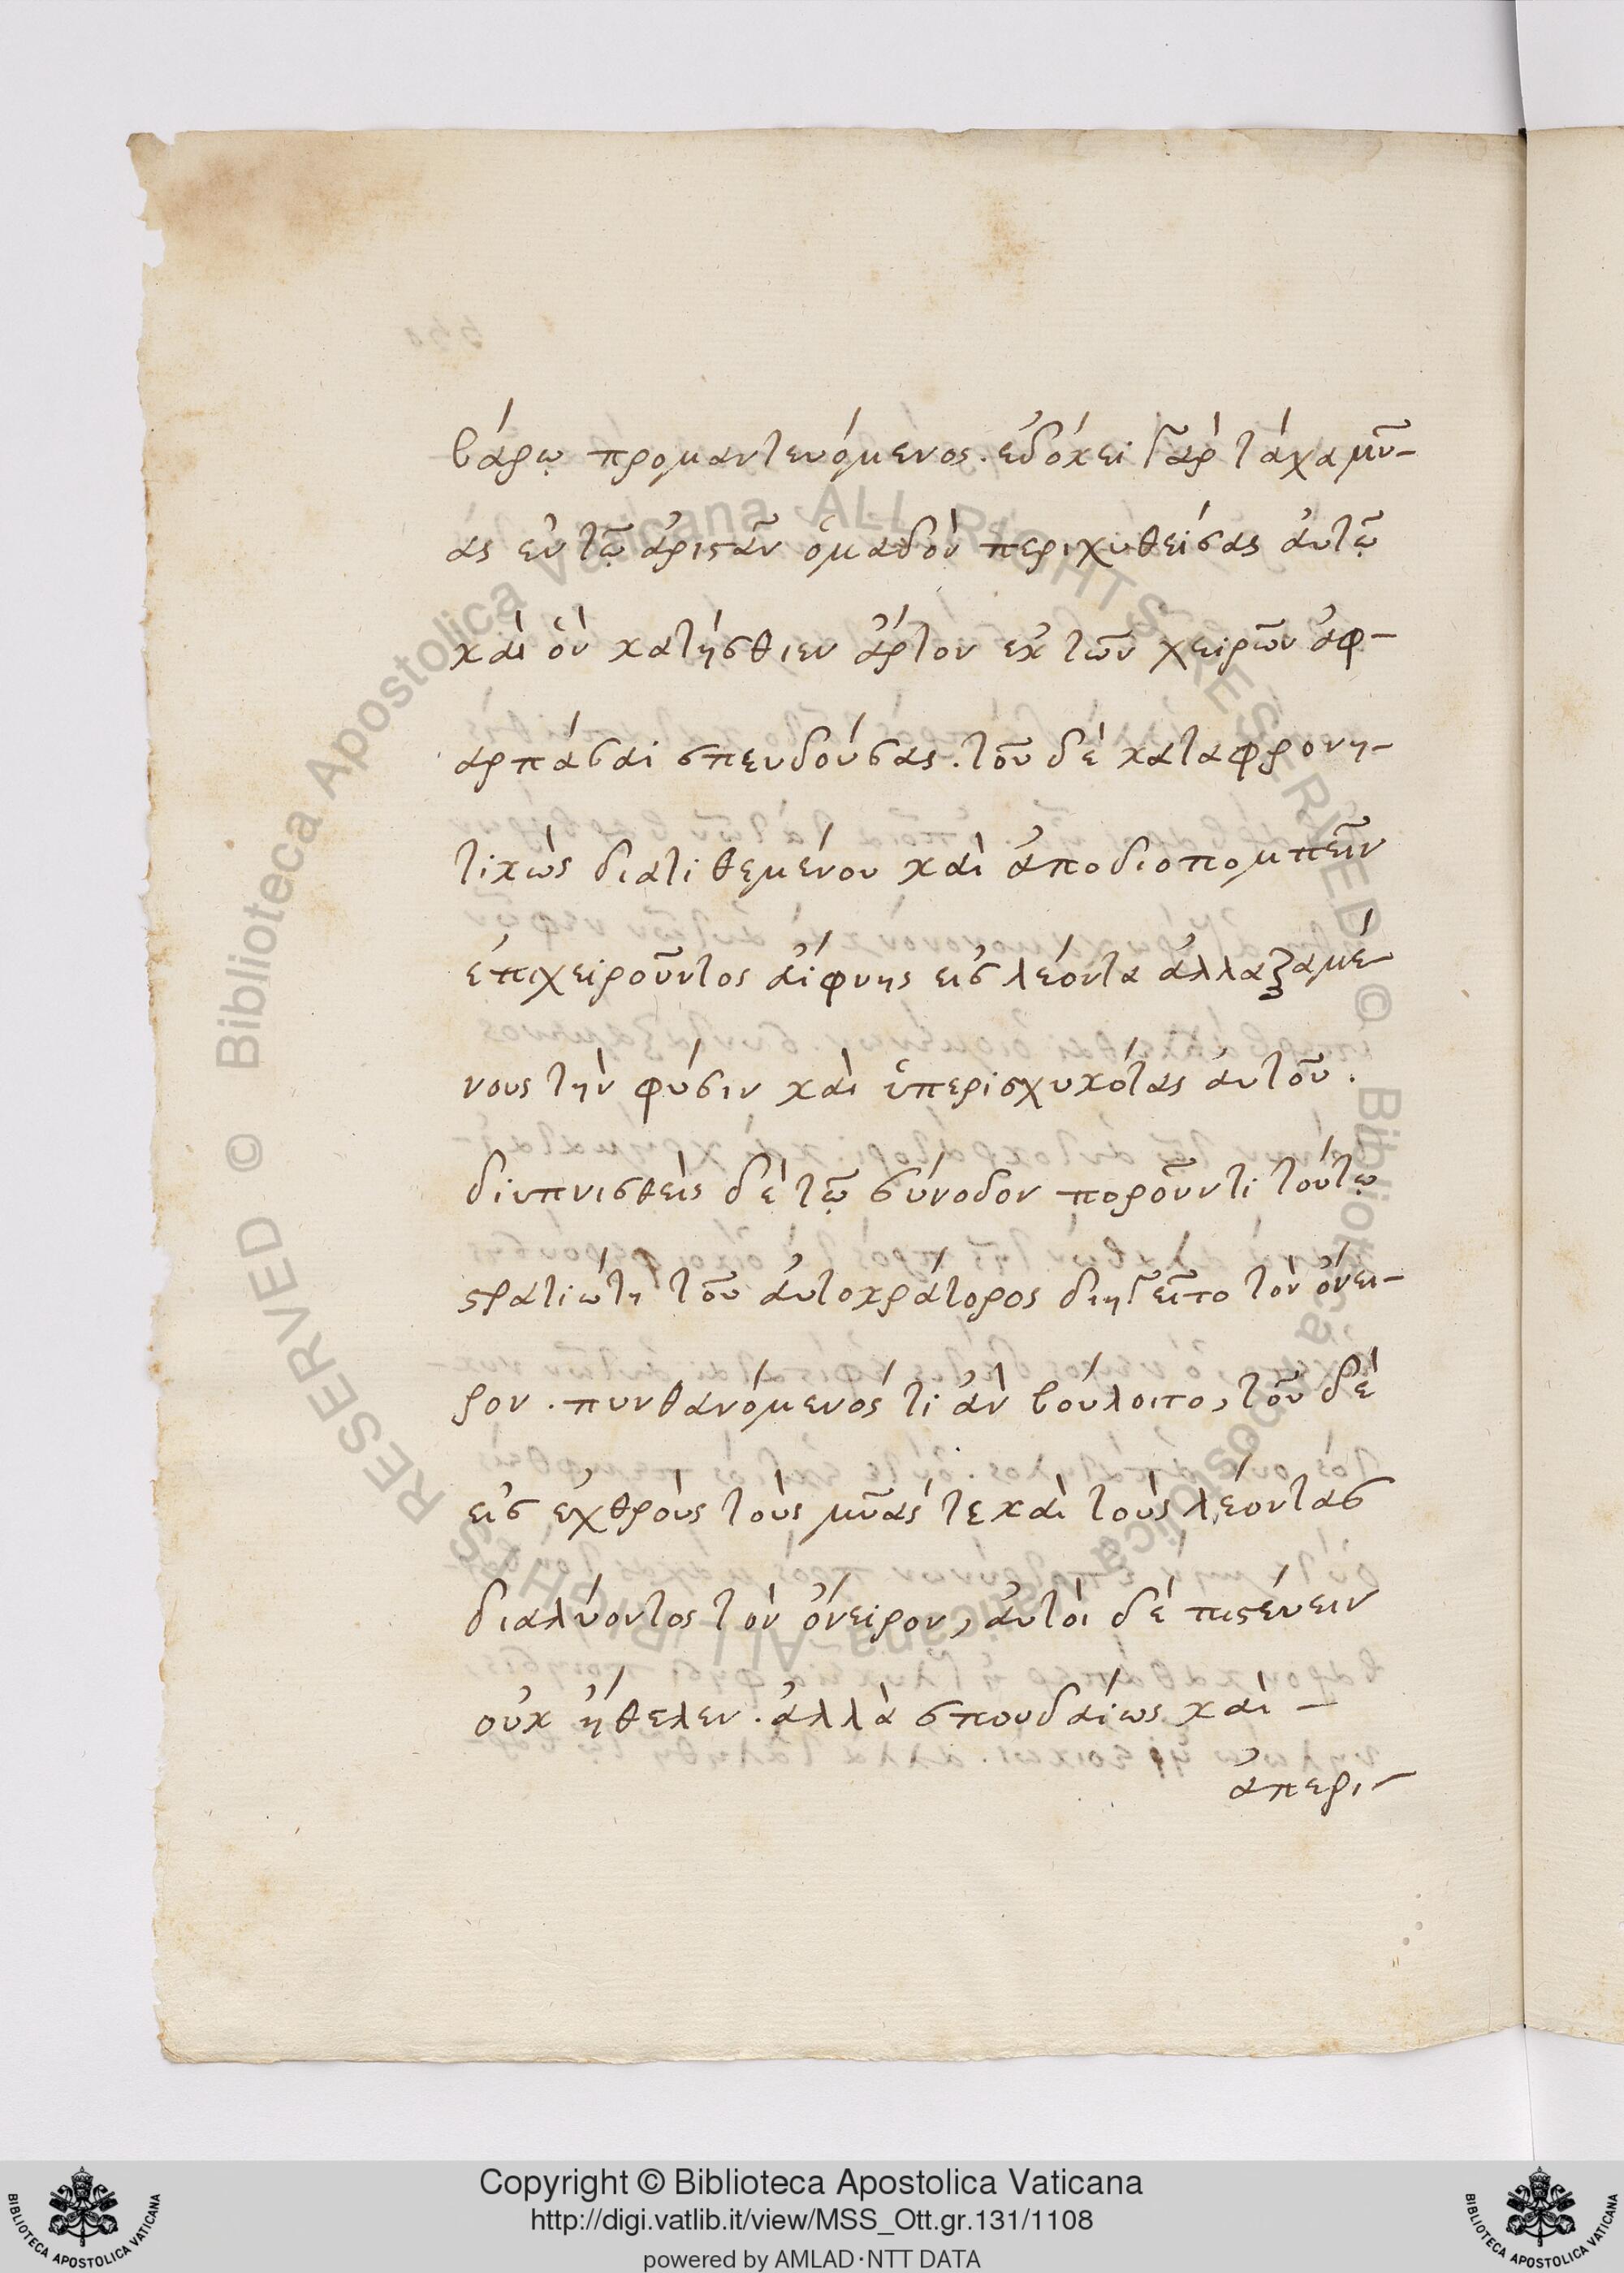 βάρῳ προμαντευόμενος. εδόκει γὰρ τάχα μῦ-
ας εν τῷ ἀριστᾶν ὁμαδὸν περιχυθείσας ἀυτῷ
καὶ ὁν κατήσθιεν ἄρτον εκ τῶν χειρῶν ἀφ-
αρπάσαι σπευδούσας. τοῦ δὲ καταφρονη-
τικῶς διατιθεμένου καὶ ἀποδιοπομπεῖν
ἐπιχειροῦντος αἴφνης εις λέοντα ἀλλαξαμέ-
νους τὴν φύσιν καὶ ὑπερισχυκότας ἀυτοῦ.
διυπνισθεὶς δὲ τῷ σύνοδον ποροῦντι τούτῳ
στρατιώτη τοῦ ἀυτοκράτορος διηγεῖτο τὸν ὄνει-
ρον. πυνθανόμενος τί ἂν βούλοιτο, τοῦ δὲ
εις εχθροὺς τοὺς μῦας τε καὶ τοὺς λέοντας
διαλύοντος τὸν ὄνειρον, ἀυτὸι δὲ πιστέυειν
ουκ ήθελεν. ἀλλὰ σπουδαίως καὶ –
ἀπερι-
Copyright © Biblioteca Apostolica Vaticana
http://digi.vatlib.it/view/MSS_Ott.gr.131/1108
powered by AMLAD·NTT DATA
BIBLIOTECA APOSTOLICA VATICANA
BIBLIOTECA APOSTOLICA VATICANA
© Biblioteca Apostolica Vaticana ALL RIGHTS RESERVED
© Biblioteca Apostolica Vaticana ALL RIGHTS RESERVED